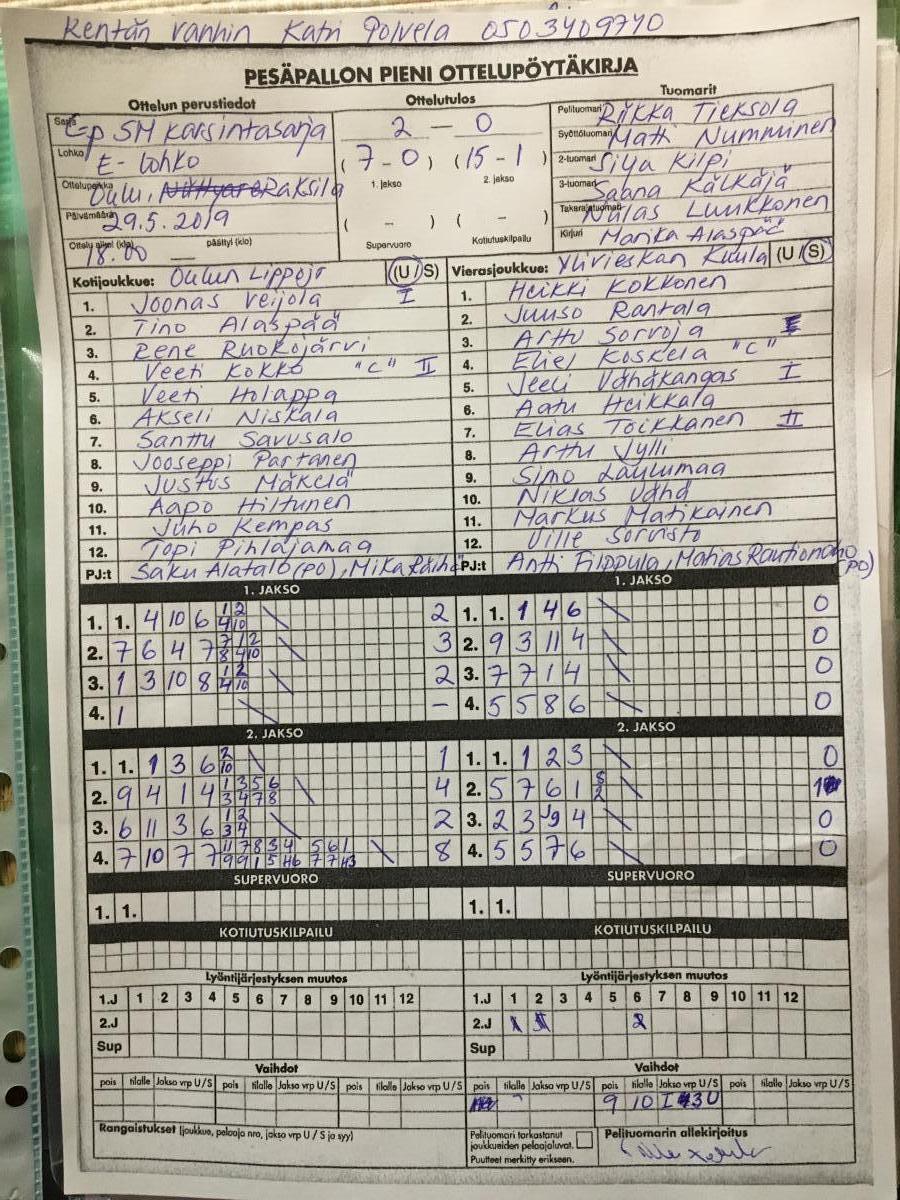 Kentän vanhin Katri Polvela 0503409710
PESÄPALLON PIENI OTTELUPÖYTÄKIRJA
Ottelun perustiedot Ottelutulos Tuomarit
Sarja E-p SM karsintasarja
Lohko E-lohko
Ottelupaikka Oulu, Raksila
Päivämäärä 29.5.2019
Ottelu alkoi (klo) 18.00 päättyi (klo)
2 - 0
(7-0) (15-1)
1. jakso 2. jakso
( - ) ( - )
Supervuoro Kotiutuskilpailu
Pelituomari Riikka Tieksola
Syöttötuomari Matti Numminen
2-tuomari Silja Kilpi
3-tuomari Saana Kälkäjä
Takarajatuomari Niilas Luukkonen
Kirjuri Marika Alaspää
Kotijoukkue: Oulun Lippo (U/S)
1. Joonas Veijola I
2. Tino Alaspää
3. Rene Ruokojärvi
4. Veeti Kokko "C" II
5. Veeti Holappa
6. Akseli Niskala
7. Santtu Savusalo
8. Jooseppi Partanen
9. Justus Mäkelä
10. Aapo Hiltunen
11. Juho Kempas
12. Topi Pihlajamaa
PJ:t Saku Alatalo (PO), Mika Räihä
Vierasjoukkue: Ylivieskan Kuula (U/S)
1. Heikki Kokkonen
2. Juuso Rantala
3. Arttu Sorvoja
4. Eliel Koskela "C"
5. Veeti Vähäkangas I
6. Aatu Heikkala
7. Elias Toikkanen II
8. Arttu Jylli
9. Simo Laulumaa
10. Niklas Vähä
11. Markus Matikainen
12. Ville Sorvisto
PJ:t Antti Filppula, Matias Rautionaho (PO)
1. JAKSO 1. JAKSO
1. 1. 4 10 6 1 2 4 10 2 1. 1. 1 4 6 0
2. 7 6 4 7 7 1 2 8 4 10 3 2. 9 3 11 4 0
3. 1 3 10 8 1 2 4 10 2 3. 7 7 1 4 0
4. 1 - 4. 5 5 8 6 0
2. JAKSO 2. JAKSO
1. 1. 1 3 6 2 10 1 1. 1. 1 2 3 0
2. 9 4 1 4 1 3 5 6 3 4 7 8 4 2. 5 7 6 1 8 2 1
3. 6 11 3 6 1 2 3 4 2 3. 2 3 9 4 0
4. 7 10 7 7 8 4. 5 5 7 6 0
SUPERVUORO SUPERVUORO
1. 1. 1. 1.
KOTIUTUSKILPAILU KOTIUTUSKILPAILU
Lyöntijärjestyksen muutos Lyöntijärjestyksen muutos
1.J 1 2 3 4 5 6 7 8 9 10 11 12 1.J 1 2 3 4 5 6 7 8 9 10 11 12
2.J 2.J
Sup Sup
Vaihdot Vaihdot
pois tilalle Jakso vrp U/S pois tilalle Jakso vrp U/S pois tilalle Jakso vrp U/S pois tilalle Jakso vrp U/S pois tilalle Jakso vrp U/S pois tilalle Jakso vrp U/S
9 10 I 3U
Rangaistukset (joukkue, pelaaja nro, jakso vrp U / S ja syy)
Pelituomari tarkastanut
joukkueiden pelaajaluvat.
Puutteet merkitty erikseen.
Pelituomarin allekirjoitus